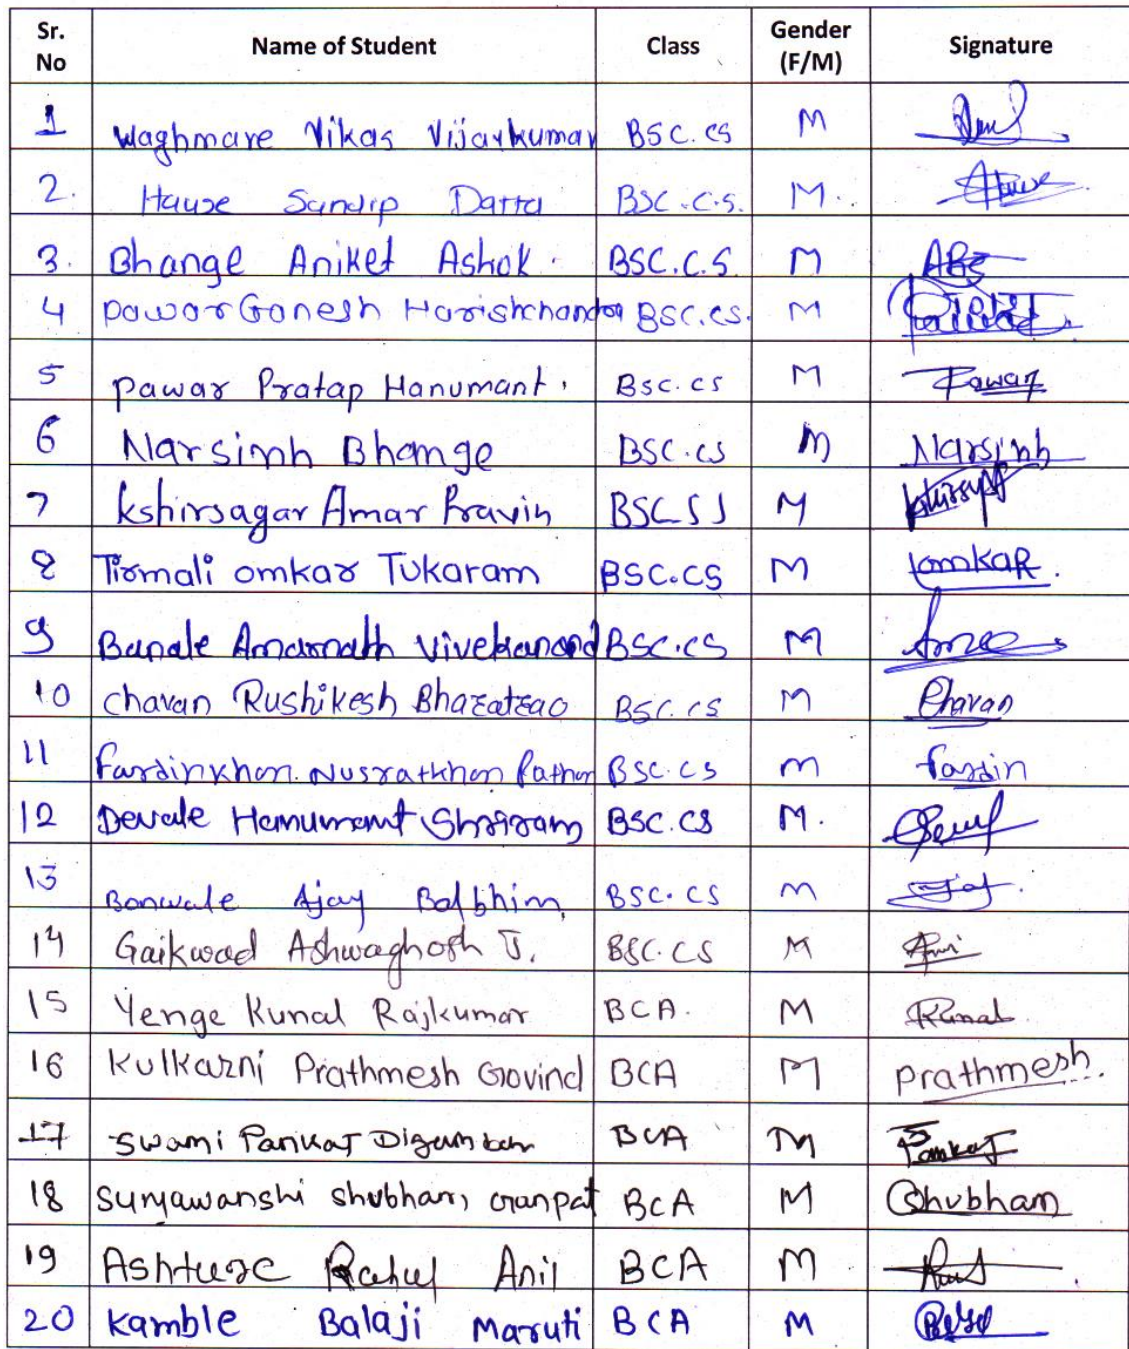 Sr. No Name of Student Class Gender (F/M) Signature
1 Waghmare Vikas Vijaykumar BSC.CS M
2. Hause Sandip Datta BSC.C.S. M.
3. Bhange Aniket Ashok. BSC.C.S. M
4 Pawar Ganesh Harishchandra BSC.CS. M
5 Pawar Pratap Hanumant. BSC.CS M Pawar
6 Narsimh Bhange BSC.CS M Narsinh
7 Kshirsagar Amar Pravin M
8 Tirmali omkar Tukaram BSC.CS M omkaR.
9 Banale Amarnath Vivekanand BSC.CS M
10 Chavan Rushikesh Bharatrao BSC.CS M Chavan
11 Fardinkhan. Nusratkhan Pathan BSC.CS M fardin
12 Devale Hanumant Shriram BSC.CS M.
13 Banwale Ajay Balbhim, BSC.CS M
14 Gaikwad Ashwaghosh J. BSC.CS M
15 Yenge Kunal Rajkumar BCA. M Kunal
16 Kulkarni Prathmesh Govind BCA M Prathmesh.
17 Swami Pankaj Digambar BCA M Pankaj
18 Suryawanshi Shubham Ganpat BCA M Shubham
19 Ashture Rahul Anil BCA M
20 Kamble Balaji Maruti BCA M